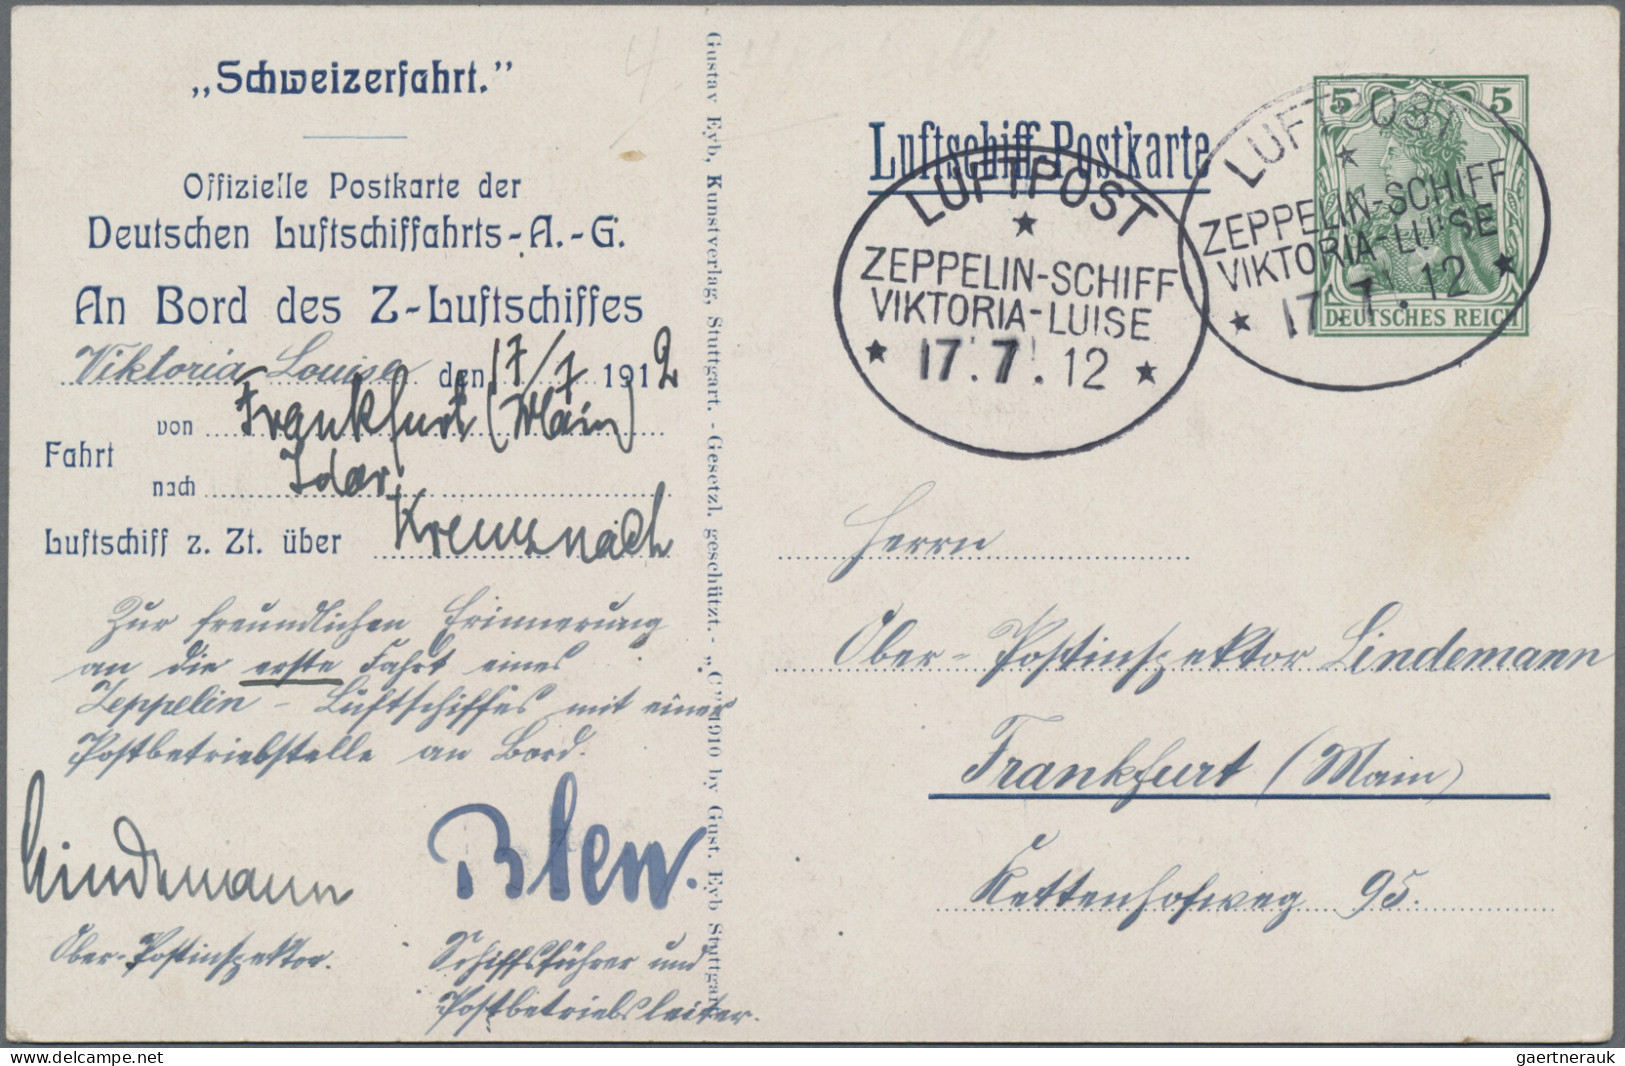 „Schweizerfahrt.”
Offizielle Postkarte der
Deutschen Luftschiffahrts-A.-G.
An Bord des Z-Luftschiffes
Viktoria Louise den 17/7 1912
von Frankfurt (Main)
Fahrt
nach Idar,
Luftschiff z. Zt. über Kreuznach
Zur freundlichen Erinnerung
an die erste Fahrt eines
Zeppelin-Luftschiffes mit einer
Postbetriebstelle an Bord.
Lindemann
Ober-Postinspektor.
Blew.
Schiffsführer und
Postbetriebsleiter.
Gustav Eyb, Kunstverlag, Stuttgart. - Gesetzl. geschützt. - „C” 1910 by Gust. Eyb Stuttgart
Luftschiff-Postkarte
LUFTPOST
ZEPPELIN-SCHIFF
VIKTORIA-LUISE
17.7.12
LUFTPOST
ZEPPELIN-SCHIFF
VIKTORIA-LUISE
17.7.12
5 5
DEUTSCHES REICH
Herrn
Ober-Postinspektor Lindemann
Frankfurt (Main)
Kettenhofweg 95.
gaertnerauk
delcampe.net